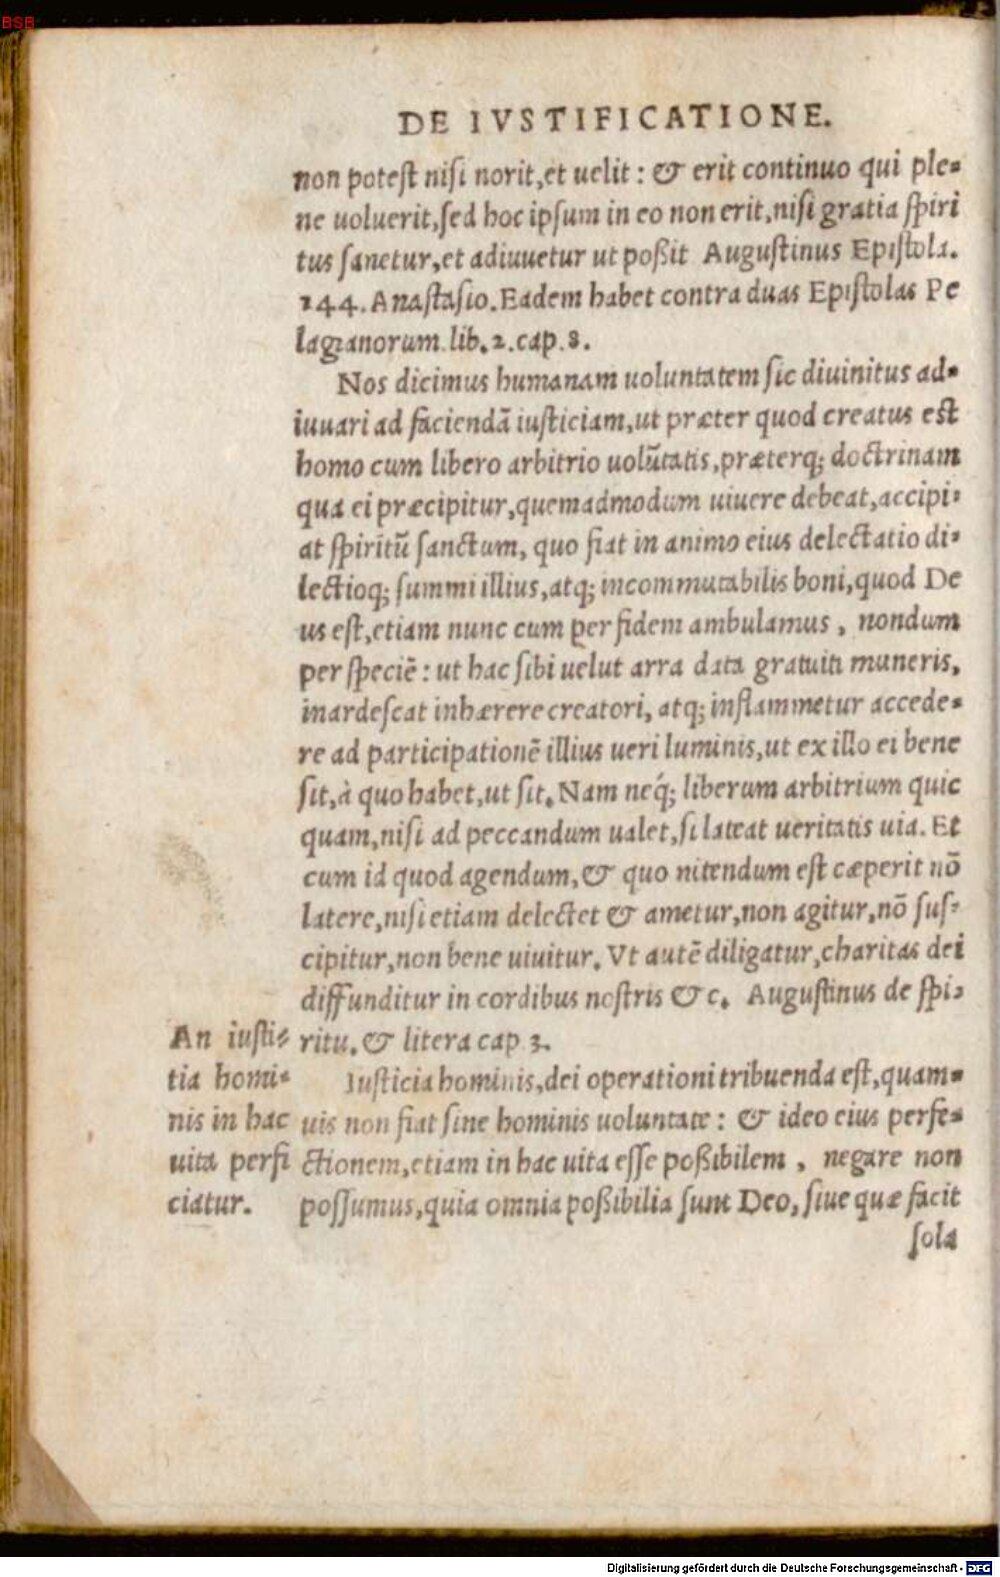 BSB
DE IVSTIFICATIONE.
non potest nisi norit,et uelit : & erit continuo qui ple-
ne uoluerit,sed hoc ipsum in eo non erit,nisi gratia spiri
tus sanetur,et adiuuetur ut poßit Augustinus Epistola.
144. Anastasio. Eadem habet contra duas Epistolas Pe
lagianorum.lib.2.cap.8.
Nos dicimus humanam uoluntatem sic diuinitus ad-
iuuari ad faciendā iusticiam,ut præter quod creatus est
homo cum libero arbitrio uolūtatis,præterq; doctrinam
qua ei præcipitur,quemadmodum uiuere debeat,accipi-
at spiritū sanctum, quo fiat in animo eius delectatio di-
lectioq; summi illius,atq; incommutabilis boni,quod De
us est,etiam nunc cum per fidem ambulamus , nondum
per speciē : ut hac sibi uelut arra data gratuiti muneris,
inardescat inhærere creatori, atq; inflammetur accede-
re ad participationē illius ueri luminis,ut ex illo ei bene
sit,à quo habet,ut sit. Nam neq́; liberum arbitrium quic
quam,nisi ad peccandum ualet,si lateat ueritatis uia. Et
cum id quod agendum,& quo nitendum est cæperit nō
latere,nisi etiam delectet & ametur,non agitur,nō sus-
cipitur,non bene uiuitur. Vt autē diligatur,charitas dei
diffunditur in cordibus nostris &c. Augustinus de spi-
ritu.& litera cap 3.
An iusti-
tia homi-
nis in hac
uita perfi
ciatur.
Iusticia hominis,dei operationi tribuenda est,quam-
uis non fiat sine hominis uoluntate : & ideo eius perfe-
ctionem,etiam in hac uita esse poßibilem , negare non
possumus,quia omnia poßibilia sunt Deo, siue quæ facit
sola
Digitalisierung gefördert durch die Deutsche Forschungsgemeinschaft - DFG